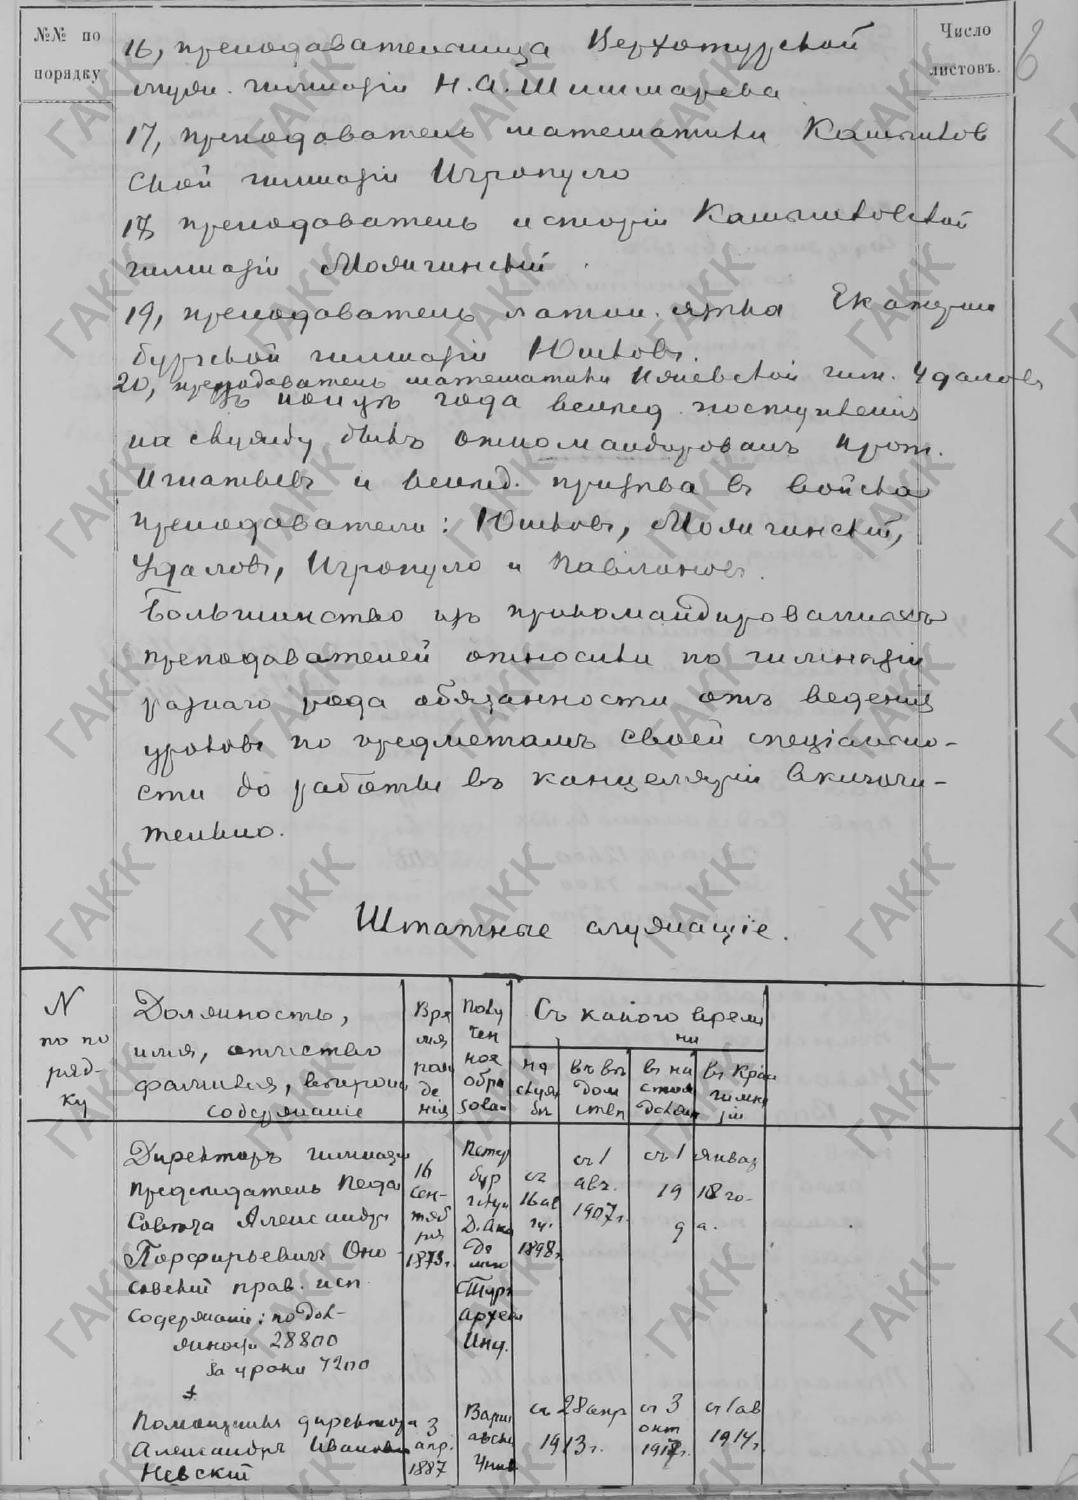 №№ по
порядку
Число
листовъ.
6
16, преподавательница Верхотурской
гимназіи Н. А. Шишмарева
17, преподаватель математики Камышлов
ской гимназіи Игропуло
18 преподаватель исторіи Камышловской
гимназіи Моличинскій.
19, преподаватель латин. языка Екатерин
бургской гимназіи Юшковъ.
20, преподаватель математики гим. Удаловъ
года вслѣд. поступленія
на службу былъ откомандированъ прот.
Игнатьевъ и вслѣд. призыва въ войска
преподаватели: Юшковъ, Моличинскій,
Удаловъ, Игропуло и Павлиновъ.
Большинство изъ прикомандированныхъ
преподавателей относили по гимназіи
разнаго рода обязанности отъ веденія
уроковъ по предметамъ своей спеціально-
сти до работы въ канцеляріи включи-
тельно.
Штатные служащіе.
N
по по
ряд-
ку
Должность,
имя, отчество
фамилия, вѣроисп
содержаніе
Вре
мя
рож
де
нія
Полу
чен
ное
обра
зован
Съ какого време
ни
на
служ
бѣ
въ вѣ
дом
ствѣ
въ на
стоя
должн
въ Крас
гимна
зіи
Директоръ гимназіи
Предсѣдатель Педа
Совѣта Александръ
Порфирьевичъ Оно
совскій прав. исп.
Содержаніе: по дол-
жности 28800
за уроки 7200
16
сен-
тяб
ря
1873г.
Петер
бур
гская
Д. Ака
де
мія
Археол
Инст.
съ
16 ав
гу.
1898г.
съ 1
авг.
1907г.
съ 1 января
19 18 го-
да.
Помощникъ директора
Александръ Ивановичъ
Невскій
3
апр.
1887
Варш
авскі
Унив
съ 28 апр
1913г.
съ 3
окт
1917г.
съ 1 ав
1914г.